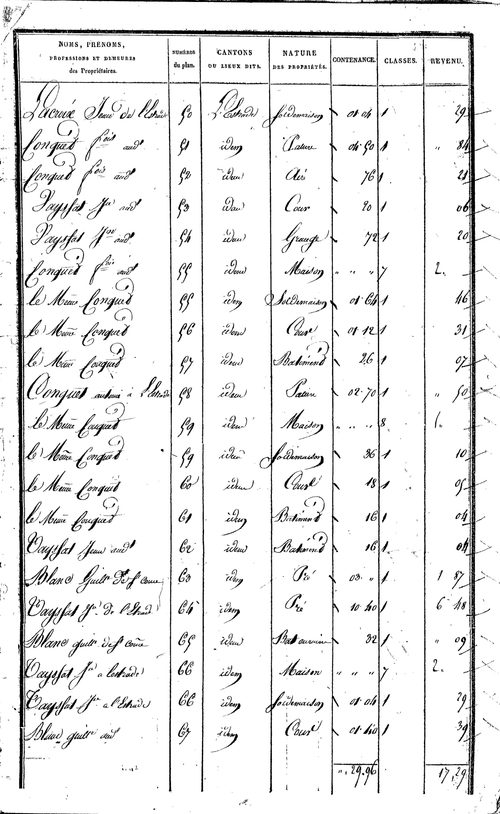 NOMS, PRÉNOMS, PROFESSIONS ET DEMEURES des Propriétaires. NUMÉROS du plan. CANTONS OU LIEUX DITS. NATURE DES PROPRIÉTÉS. CONTENANCE. CLASSES. REVENU.
Lacroix Jean de l'Estrade 50 L'Estrade Sol de maison 01 04 1 29
Conquet fois aud 51 idem Pature 04 50 1 " 84
Conquet fois aud 52 idem Air 76 1 21
Vayssat Jn aud 53 idem Cour 20 1 06
Vayssat Jn aud 54 idem Grange 72 1 20
Conquet fois aud 55 idem Maison " " " 7 2.
le Même Conquet 55 idem Sol de maison 01 64 1 46
le Même Conquet 56 idem Cour 01 12 1 31
le Même Conquet 57 idem Batiment 26 1 07
Conquet antoine à l'Estrade 58 idem Pature 02 70 1 " 50
le Même Conquet 59 idem Maison " " " 8 1.
le Même Conquet 59 idem Sol de maison 36 1 10
le Même Conquet 60 idem Cour 18 1 05
le Même Conquet 61 idem Batiment 16 1 04
Vayssat Jean aud 62 idem Batiment 16 1 04
Blanc Guilr de St Come 63 idem Pré 03 " 1 1 87
Vayssat Jn de l'Estrade 64 idem Pré 10 40 1 6 48
Blanc guilr de St Come 65 idem 32 1 " 09
Vayssat Jn a lestrade 66 idem Maison " " " 7 2.
Vayssat Jn a l'Estrade 66 idem Sol de maison 01 04 1 29
Blanc guilr aud 67 idem Cour 01 40 1 39
" 29.96 17,29